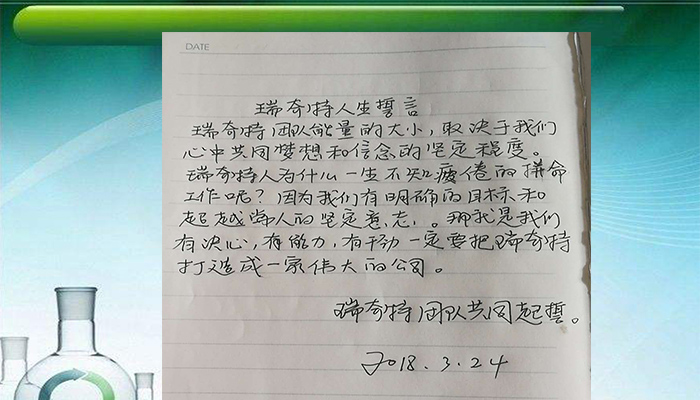 DATE
瑞奇特人生誓言
瑞奇特团队能量的大小，取决于我们
心中共同梦想和信念的坚定程度。
瑞奇特人为什么一生不知疲倦的拼命
工作呢？因为我们有明确的目标和
超越常人的坚定意志，。那就是我们
有决心，有能力，有干劲一定要把瑞奇特
打造成一家伟大的公司。
瑞奇特团队共同起誓。
2018.3.24